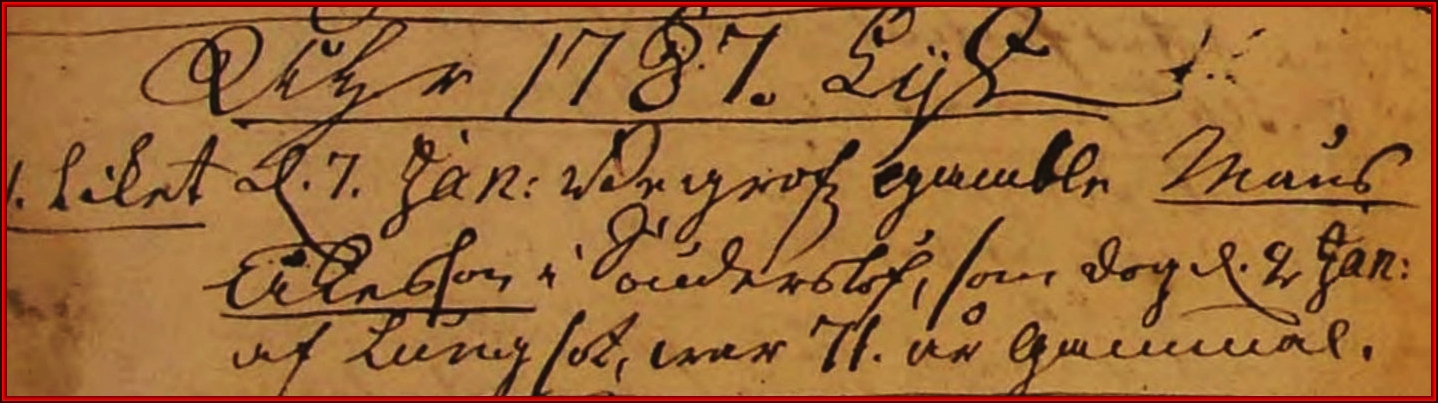 Åhr 1737. Lijk
1. Liket d. 7. Jan: Begrofs gamble Måns
Åkesson i Sönderslöf, som dog d. 2 Jan:
af Lungsot, war 71. år gammal.